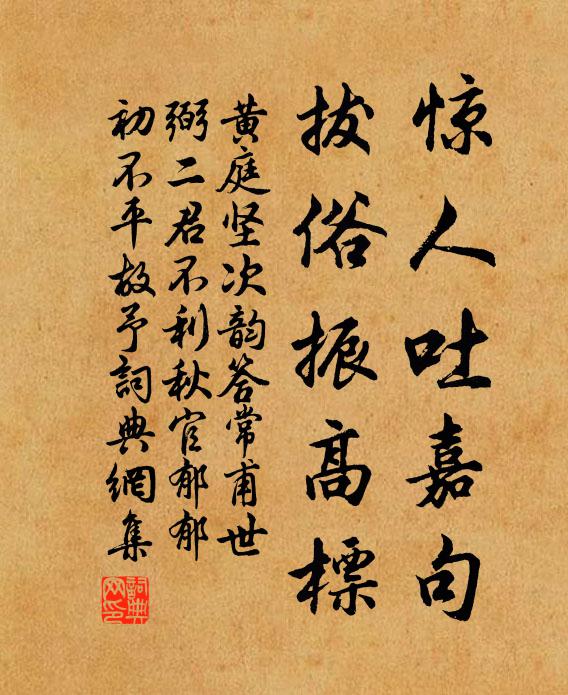 惊人吐嘉句
拔俗振高標
黄庭坚次韵答常甫世
弼二君不利秋官郁郁
初不平故予詞典網集
詞典網印